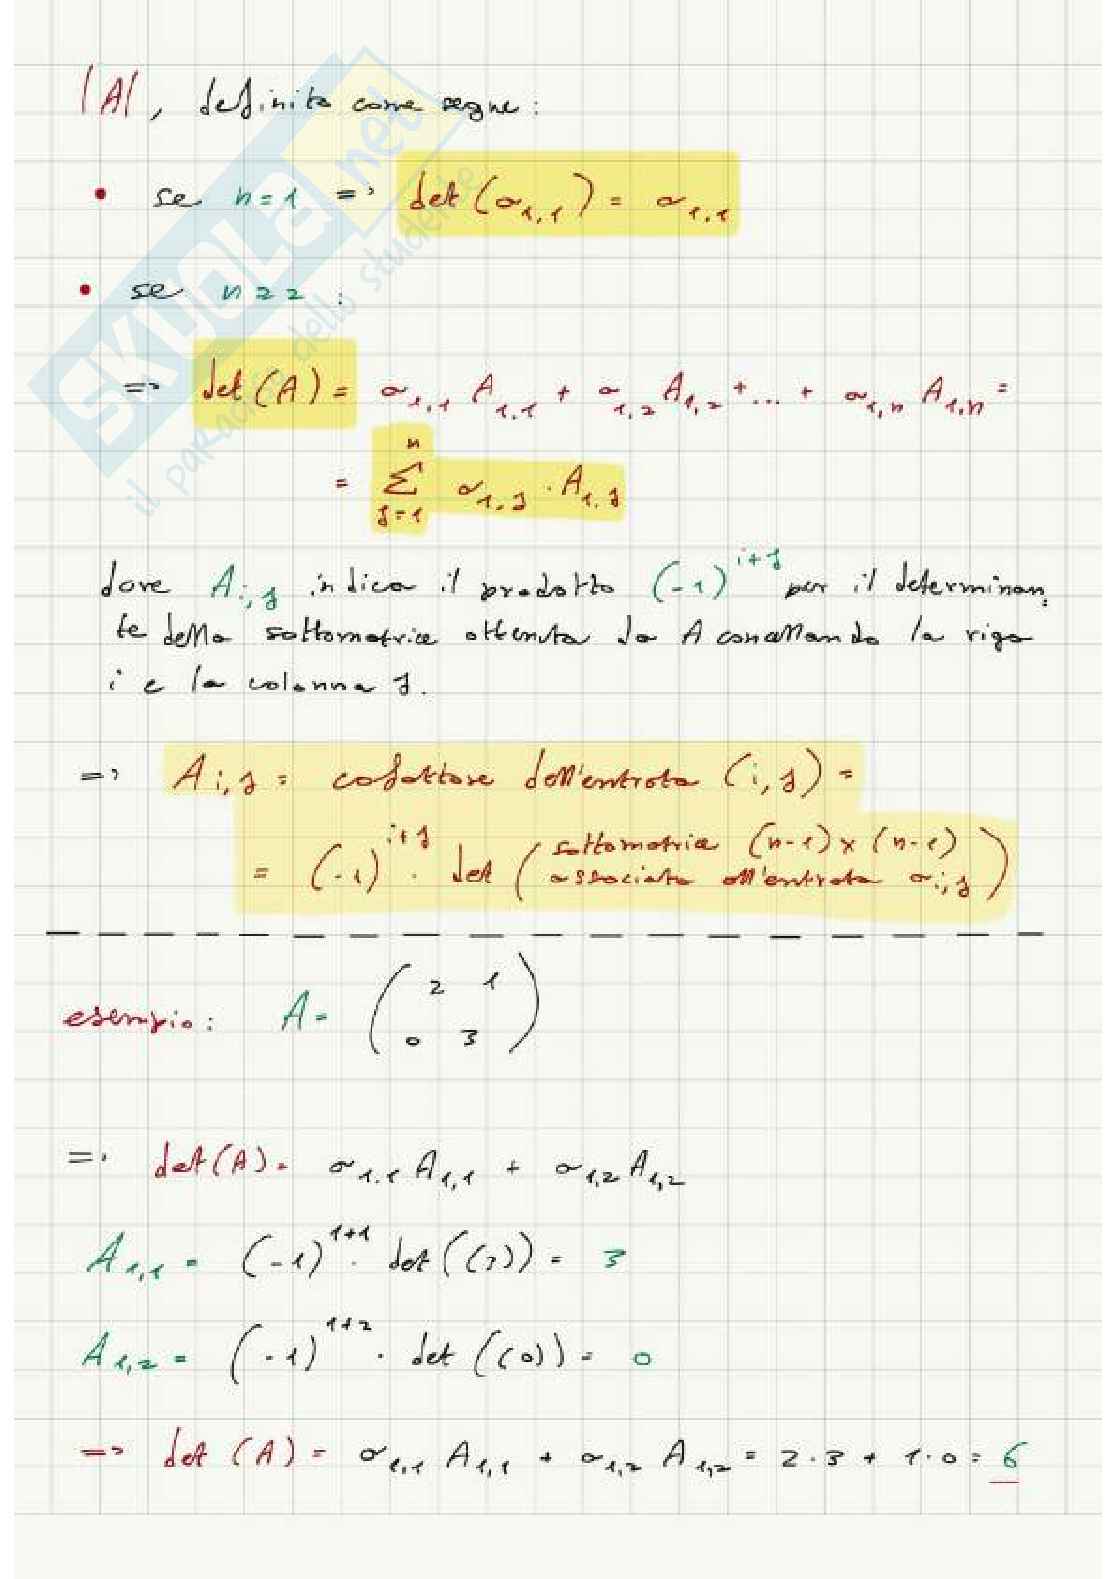 |A|, definito come segue:
• se n=1 => det(a₁,₁) = a₁,₁
• se n≥2 :
=> det(A) = a₁,₁ A₁,₁ + a₁,₂ A₁,₂ + ... + a₁,ₙ A₁,ₙ =
= ∑ⱼ₌₁ⁿ a₁,ⱼ · A₁,ⱼ
dove Aᵢ,ⱼ indica il prodotto (-1)ⁱ⁺ʲ per il determinan,
te della sottomatrice ottenuta da A cancellando la riga
i e la colonna j.
=> Aᵢ,ⱼ = cofattore dell'entrata (i,j) =
= (-1)ⁱ⁺ʲ · det ( sottomatrice (n-1)×(n-1)
associata all'entrata aᵢ,ⱼ )
esempio: A = ( 2 1
0 3 )
=> det(A) = a₁,₁ A₁,₁ + a₁,₂ A₁,₂
A₁,₁ = (-1)¹⁺¹ · det((3)) = 3
A₁,₂ = (-1)¹⁺² · det((0)) = 0
=> det(A) = a₁,₁ A₁,₁ + a₁,₂ A₁,₂ = 2·3 + 1·0 = 6
SKUOLA.net
il paradiso dello studente